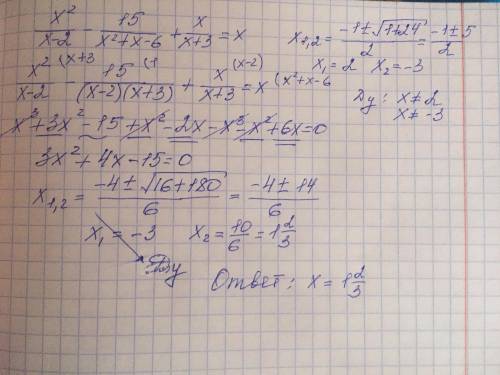 x²/(x-2) - 15/(x²+x-6) + x/(x+3) = x
x₁,₂ = (-1±√(1+24))/2 = (-1±5)/2
x₁ = 2 x₂ = -3
Ду: x≠2
x≠-3
x² (x+3/(x-2) - 15 (1/((x-2)(x+3)) + x (x-2)/(x+3) = x (x²+x-6
x³+3x²-15+x²-2x-x³-x²+6x=0
3x²+4x-15=0
x₁,₂ = (-4±√(16+180))/6 = (-4±14)/6
x₁ = -3 x₂ = 10/6 = 1 2/3
Ду
Ответ: x = 1 2/3